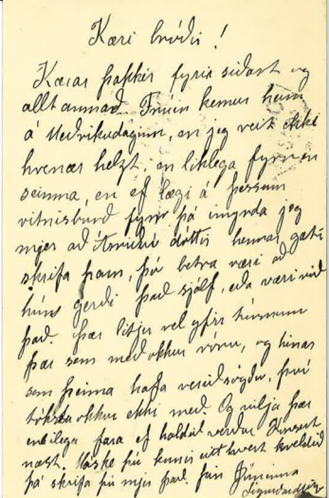 Kæri bróðir!
Kærar þakkir fyrir siðast og
allt annað. Frúin kemur heim
á Miðvikudaginn, en jeg veit ekki
hvenær helzt, en liklega fyrr en
seinna, en ef lægi á þessum
vitnisburð fyrir þá imynda jeg
mjer að dóttir hennar gæti
skrifa hann, þó betra væri að
hún gerði það sjálf, eða væri við
það. Þær litu vel yfir
þær sem með okkur vóru, og hinar
sem heima hafa verið því
tóksta okkur ekki með. Og vilja þær
endilega fara ef haldið verður
næst. Máske þú komir eitt hvert kveldið
þá skrifa þú mjer það. þín